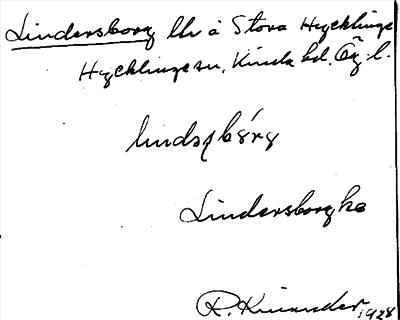 Lindersborg lh å Stora Hycklinge
Hycklinge sn, Kinda hd. Ög. l.
lindəʂbórg
Lindersborg ho
R. Kinander 1928